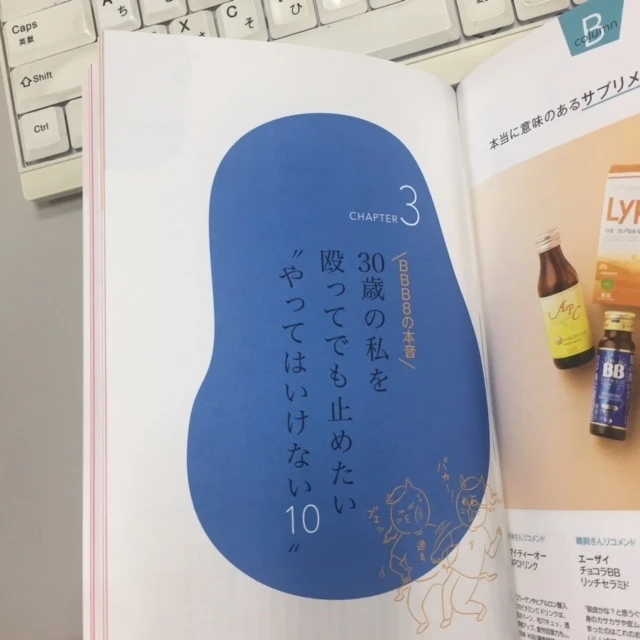 Caps
英数
Shift
Ctrl
CHAPTER 3
\BBB8の本音/
30歳の私を
殴ってでも止めたい
"やってはいけない10"
バカー!
B
column
本当に意味のあるサプリメ
LYP
APC
BB
さんリコメンド
アイティーオー
APCドリンク
さんリコメンド
エーザイ
チョコラBB
リッチセラミド